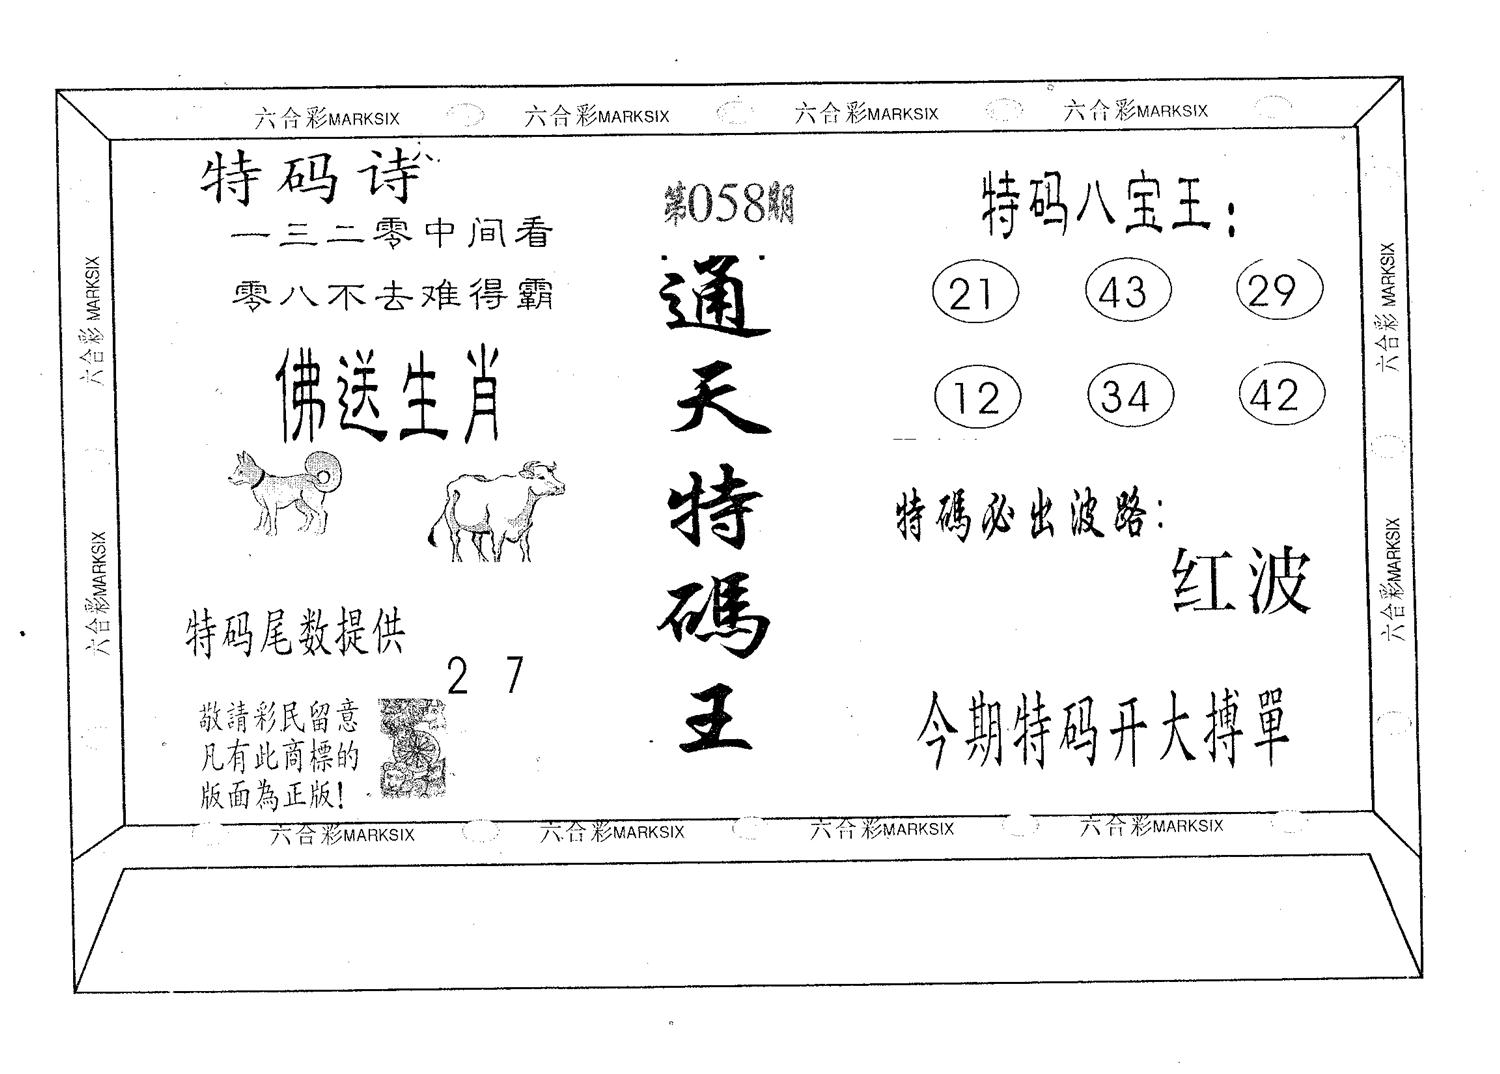 六合彩MARKSIX 六合彩MARKSIX 六合彩MARKSIX 六合彩MARKSIX
六合彩 MARKSIX
六合彩MARKSIX
特码诗
一三二零中间看
零八不去难得霸
佛送生肖
特码尾数提供
2 7
敬請彩民留意
凡有此商標的
版面為正版!
第058期
通
天
特
碼
王
特码八宝王:
21 43 29
12 34 42
特碼必出波路:
红波
今期特码开大搏單
六合彩 MARKSIX
六合彩MARKSIX
六合彩MARKSIX 六合彩MARKSIX 六合彩MARKSIX 六合彩MARKSIX